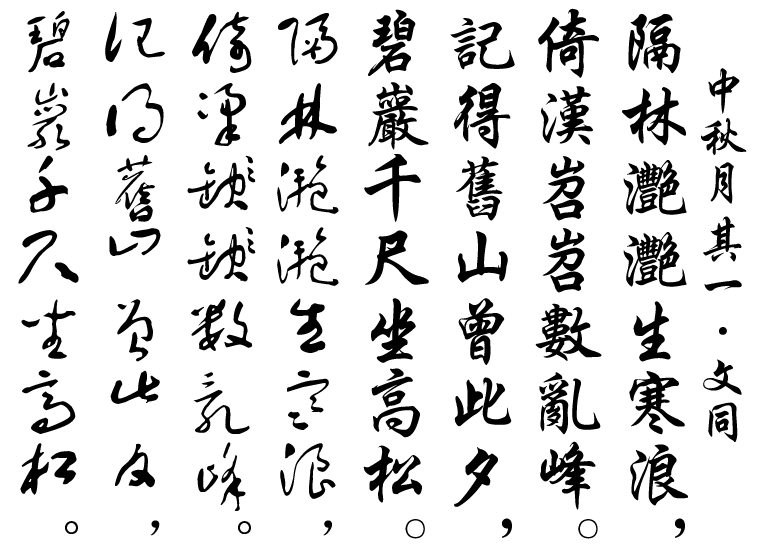 中秋月其一・文同
隔林灩灩生寒浪，
倚漢岧岧數亂峰。
記得舊山曾此夕，
碧巖千尺坐高松。
隔林灩灩生寒浪，
倚漢數亂峰。
記得舊山曾此夕，
碧巖千尺坐高松。